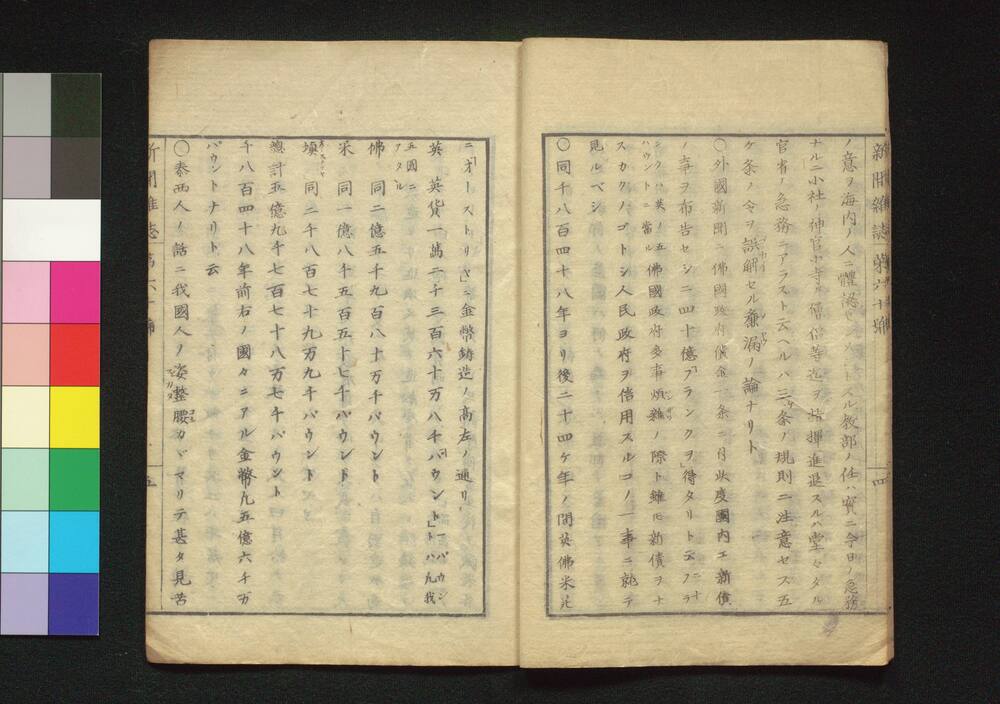 新聞雑誌第六十号
ノ意ヲ海内ノ人ニ體認セシメントスル教部ノ任ハ實ニ今日ノ急務
ナルニ小社ノ神官小寺ノ僧侶等迄ヲ指揮進退スルハ堂々タル
官省ノ急務ニアラスト云ヘルハ三条ノ規則ニ注意セス五
ケ条ノ令ヲ誤解セル麁漏ノ論ナリト
〇外國新聞ニ佛國政府償金一条ニ付此度國内エ新債
ノ事ヲ布告セシニ四十億フランクヲ得タリト云フ
佛國政府多事煩雜ノ際ト雖モ新債ヲナ
スカクノゴトシ人民政府ヲ信用スルコノ一事ニ就テ
見ルベシ
〇同千八百四十八年ヨリ後二十四ケ年ノ間英佛米
四
ニオーストリヤニ金幣鋳造ノ高左ノ通リ
英 英貨一萬二千三百六十万八千パウンド
佛 同二億五千九百八十万千パウント
米 同一億八千五百五十七千パウンド
墺 同二千八百七十九万九千パウント
總計五億九千七百七十八万七千パウント
千八百四十八年前右ノ國々ニアル金幣凡五億六千万
パウントナリト云
〇泰西人ノ話ニ我國人ノ姿整腰カヾマリテ甚タ見苦
五